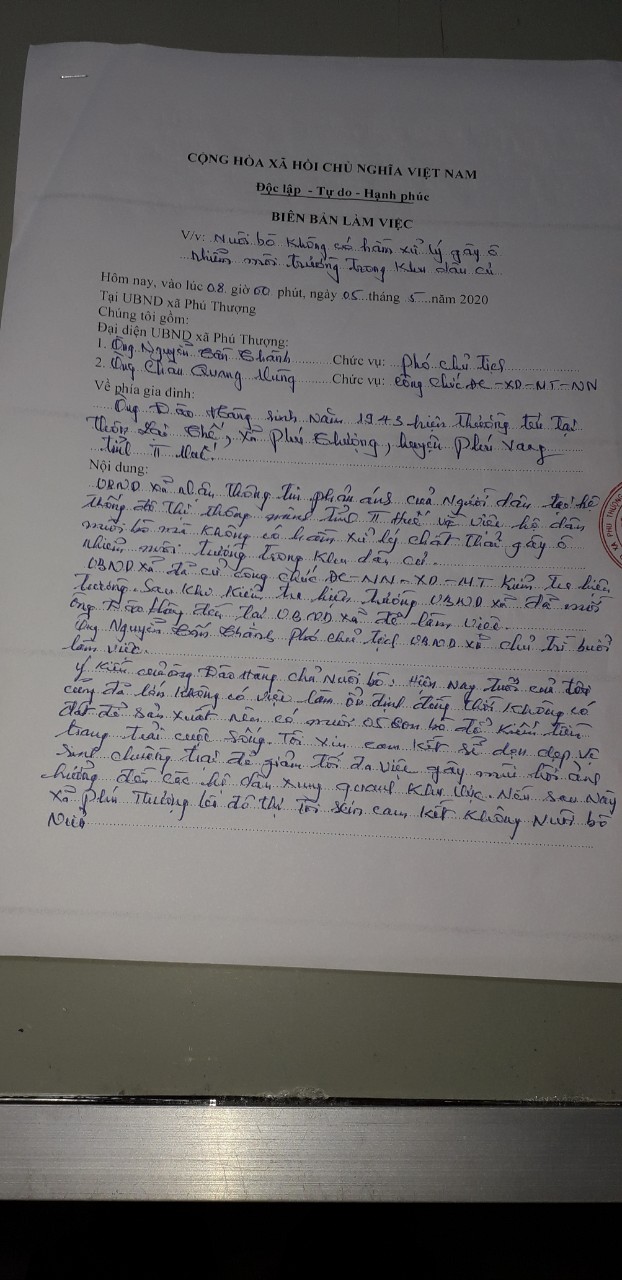 CỘNG HÒA XÃ HỘI CHỦ NGHĨA VIỆT NAM
Độc lập - Tự do - Hạnh phúc
BIÊN BẢN LÀM VIỆC
V/v: Nuôi bò không có hầm xử lý gây ô
nhiễm môi trường trong khu dân cư
Hôm nay, vào lúc 08 giờ 00 phút, ngày 05 tháng 5 năm 2020
Tại UBND xã Phú Thượng
Chúng tôi gồm:
Đại diện UBND xã Phú Thượng:
1. Ông Nguyễn Thành Chức vụ: Phó chủ tịch
2. Ông Châu Quang Chức vụ: Công chức ĐC-XD-MT-NN
Về phía gia đình:
Ông Đào Hàng sinh năm 1943 hiện thường trú tại
thôn Lại Thế, xã Phú Thượng, huyện Phú Vang
tỉnh TT Huế.
Nội dung:
UBND xã nhận thông tin phản ánh của người dân tại hệ
thống đô thị thông minh tỉnh TT Huế về việc hộ dân
nuôi bò mà không có hầm xử lý chất thải gây ô
nhiễm môi trường trong khu dân cư.
UBND xã đã cử công chức ĐC-NN-XD-MT kiểm tra hiện
trường. Sau khi kiểm tra hiện trường UBND xã đã mời
ông Đào Hàng đến tại UBND xã để làm việc.
Ông Nguyễn Thành Phó chủ tịch UBND xã chủ trì buổi
làm việc.
Ý kiến của ông Đào Hàng chủ nuôi bò: Hiện nay tuổi của tôi
cũng đã lớn không có việc làm ổn định đồng thời không có
đất để sản xuất nên có nuôi 05 con bò để kiếm tiền
trang trải cuộc sống. Tôi xin cam kết sẽ dọn dẹp vệ
sinh chuồng trại để giảm tối đa việc gây mùi hôi ảnh
hưởng đến các hộ dân xung quanh khu vực. Nếu sau này
xã Phú Thượng lên đô thị tôi xin cam kết không nuôi bò
nữa